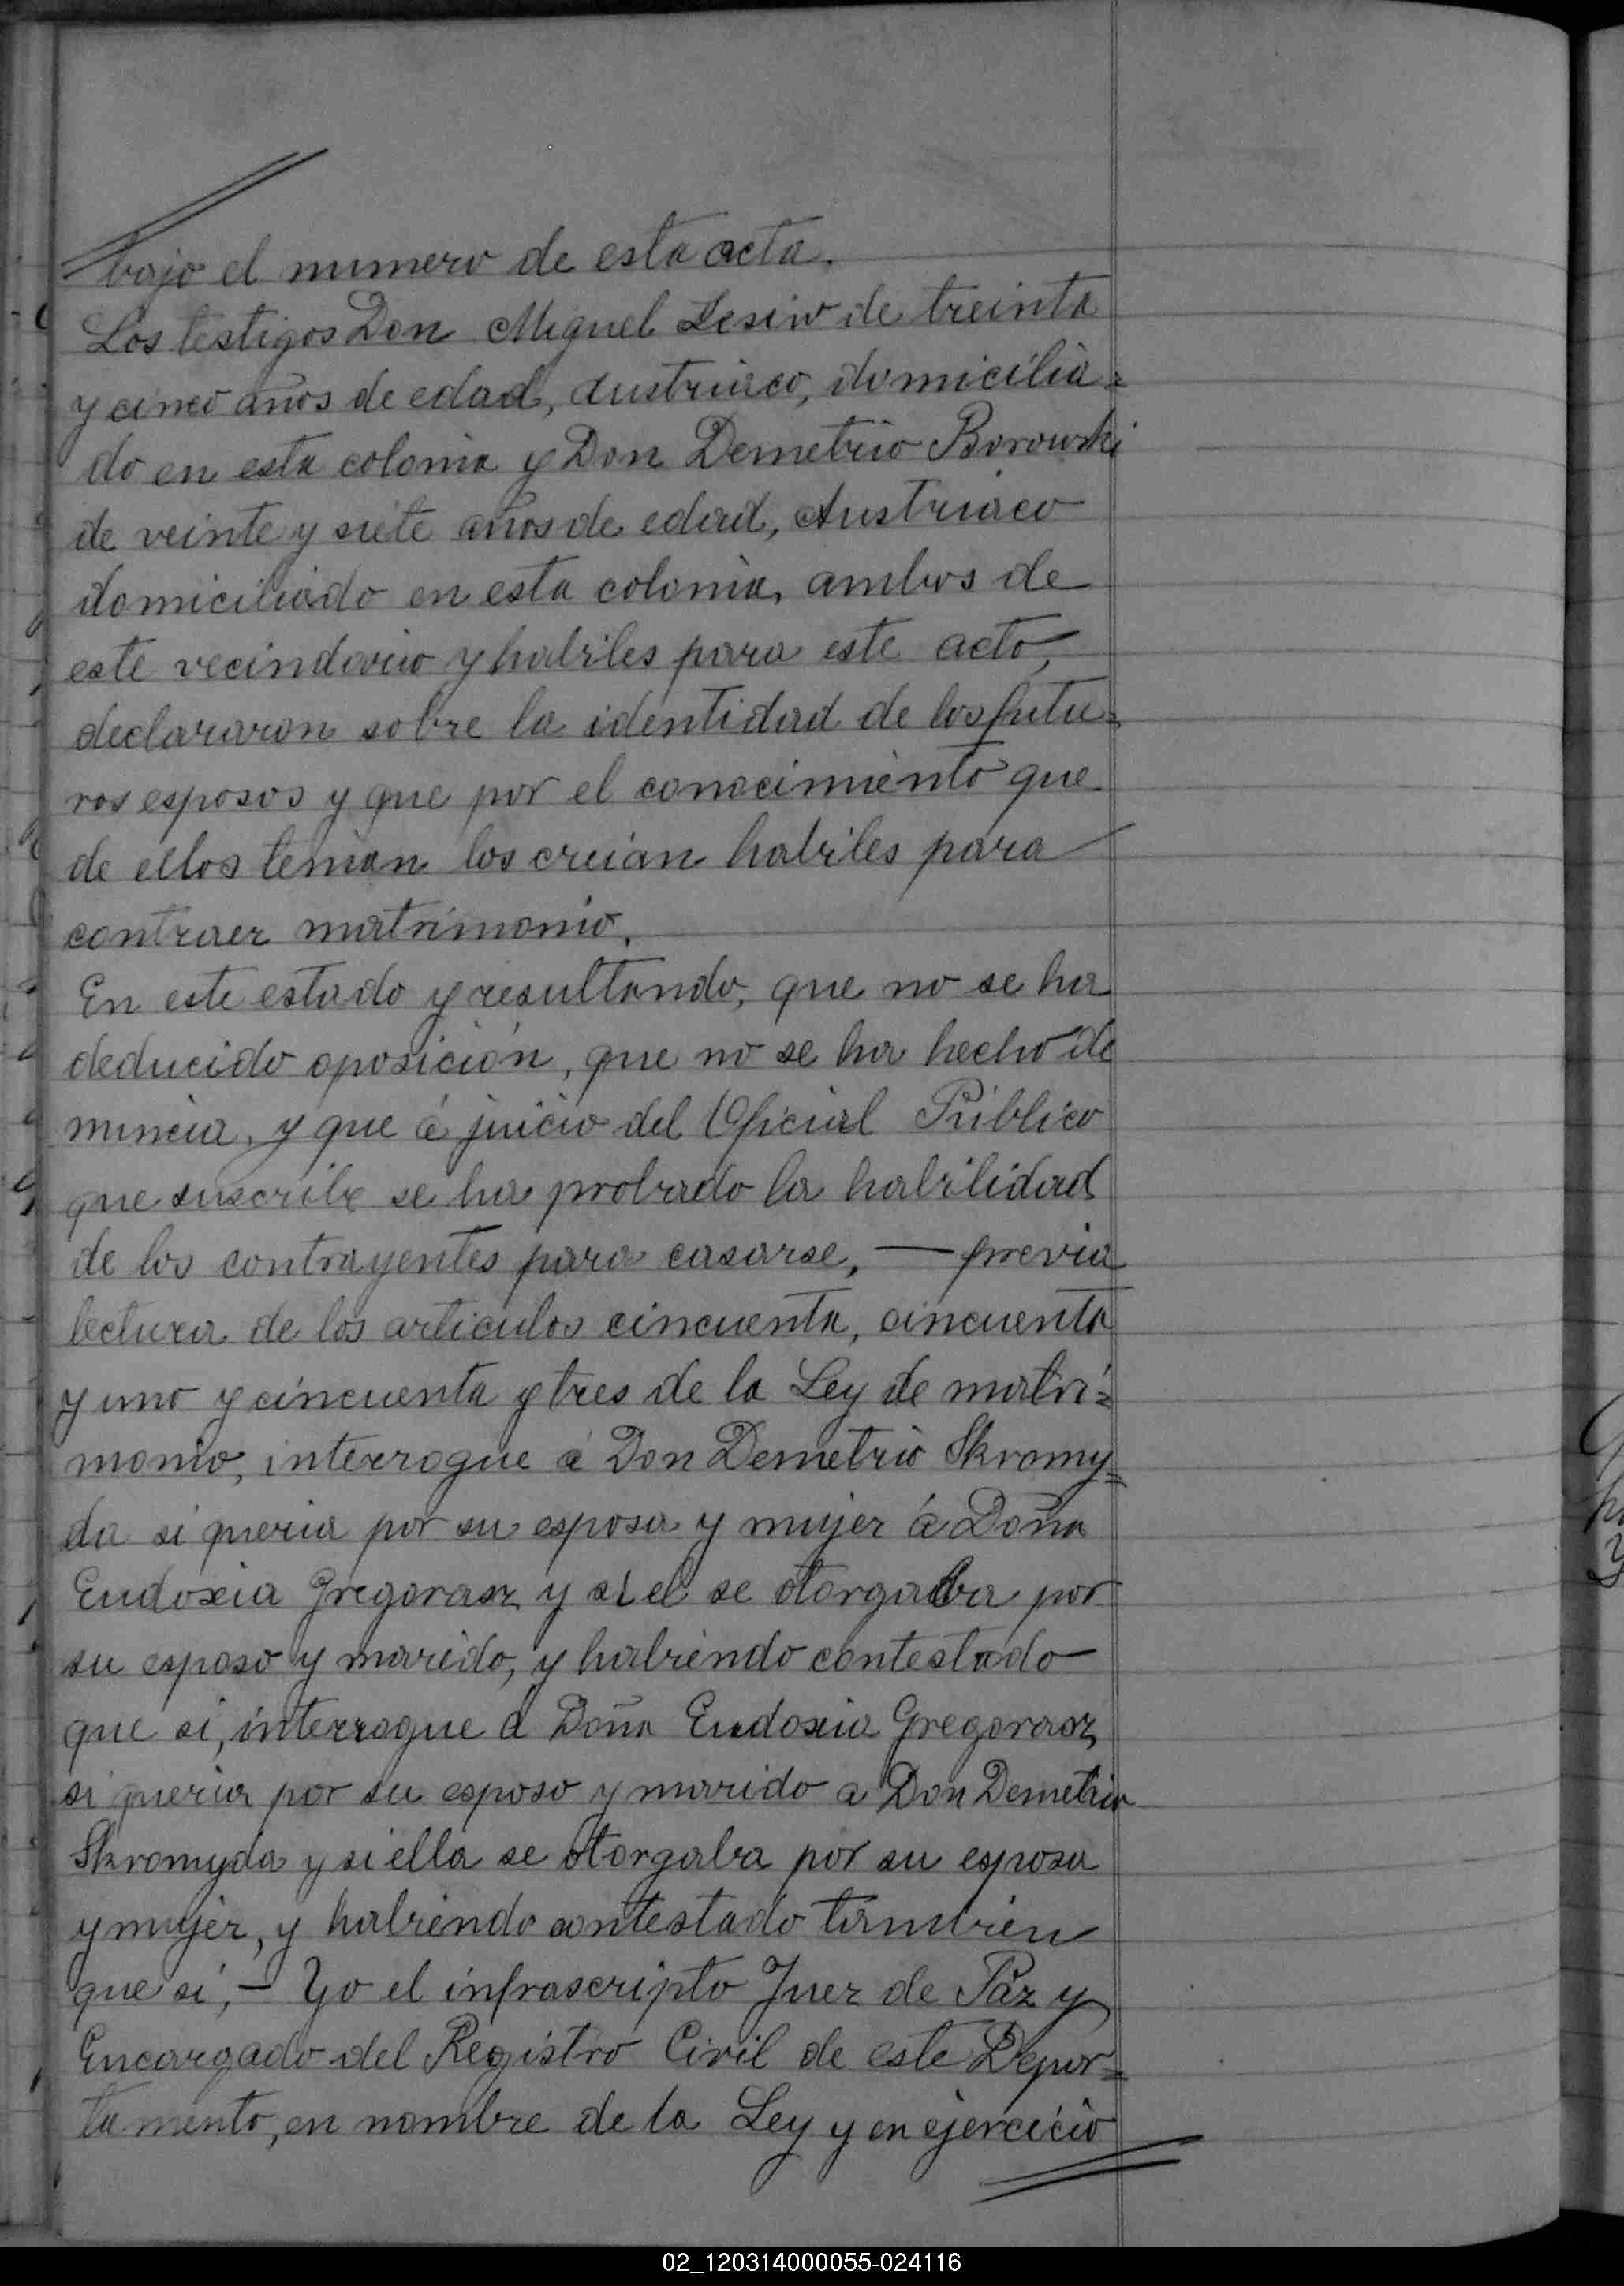 bajo el numero de esta acta.
Los testigos Don Miguel Lesiw de treinta
y cinco años de edad, Austriaco, domicilia=
do en esta colonia y Don Demetrio Borowski
de veinte y siete años de edad, Austriaco
domiciliado en esta colonia, ambos de
este vecindario y habiles para este acto,
declararon sobre la identidad de los futu=
ros esposos y que por el conocimiento que
de ellos tenian los creian habiles para
contraer matrimonio.
En este estado y resultando, que no se ha
deducido oposición, que no se ha hecho de
nuncia, y que á juicio del Oficial Público
que suscribe se ha probado la habilidad
de los contrayentes para casarse, — previa
lectura de los articulos cincuenta, cincuenta
y uno y cincuenta y tres de la Ley de matri=
monio, interrogue á Don Demetrio Skromy=
da si queria por su esposa y mujer á Doña
Eudoxia Gregorasz y si el se otorgaba por
su esposo y marido, y habiendo contestado
que si, interrogue á Doña Eudoxia Gregorasz
si queria por su esposo y marido a Don Demetrio
Skromyda y si ella se otorgaba por su esposa
y mujer, y habiendo contestado tambien
que si, — Yo el infrascripto Juez de Paz y
Encargado del Registro Civil de este Depar=
tamento, en nombre de la Ley y en ejercicio
02_120314000055-024116